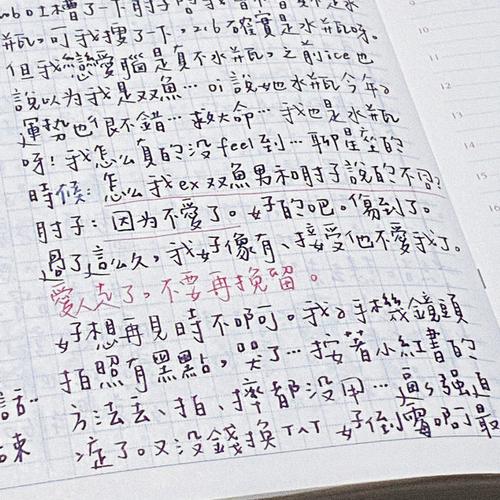 瓶。可我搜了一下，2.16確實是水瓶呀。
但我戀愛腦是真不水瓶，之前ice也
說以为我是双魚…oi說她水瓶今年
運势也很不錯…救大命…我也是水瓶
呀！我怎么真的没feel到…聊星座的
時候：怎么我ex双魚男和肘子說的不同？
肘子：因为不愛了。好的吧。傷到了。
過了這么久，我好像有、接受他不愛我了。
愛人走了。不要再挽留。
好想再見時不啊。我手機鏡頭
拍照有黑點，哭了…按著小紅書的
話… 方法去、拍、擠都没用…逼強迫
束 症了。又没錢換TAT 好倒霉啊最